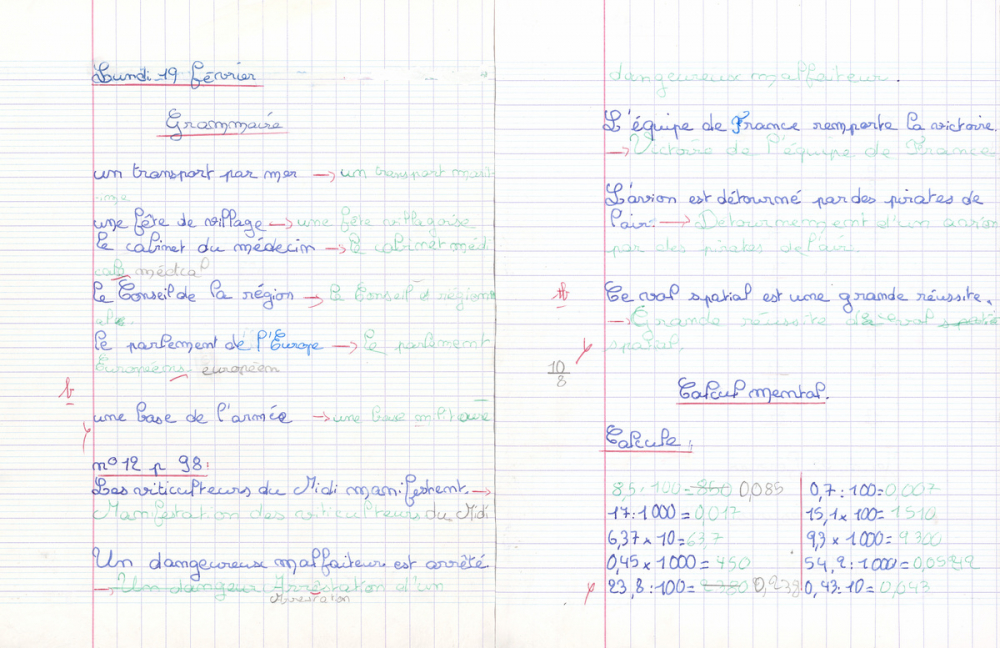 Lundi 19 février
Grammaire
un transport par mer → un transport marit
ime
une fête de village → une fête villageoise
le cabinet du médecin → le cabinet médi
cale médical
le Conseil de la région → le Conseil régionn
ale.
le parlement de l'Europe → le parlement
Européens européen
b
une base de l'armée → une base militaire
n° 12 p 98:
Les viticulteurs du Midi manifestent. →
Manifestation des viticulteurs du Midi
Un dangeureux malfaiteur est arrêté
→ Un dangeur Arrestation d'un
Arrestation
dangeureux malfaiteur.
L'équipe de France remporte la victoire
→ Victoire de l'équipe de France
L'avion est détourné par des pirates de
l'air. → Détournement d'un avion
par des pirates de l'air
tb
Ce vol spatial est une grande réussite.
→ Grande réussite de vol
spatial.
10
8
Calcul mental.
Calcule:
8,5 : 100 = 850 0,085
0,7 : 100 = 0,007
17 : 1000 = 0,017
15,1 x 100 = 1510
6,37 x 10 = 63,7
9,3 x 1000 = 9300
0,45 x 1000 = 450
54,2 : 1000 = 0,0542
23,8 : 100 = 2380 0,238
0,43 : 10 = 0,043